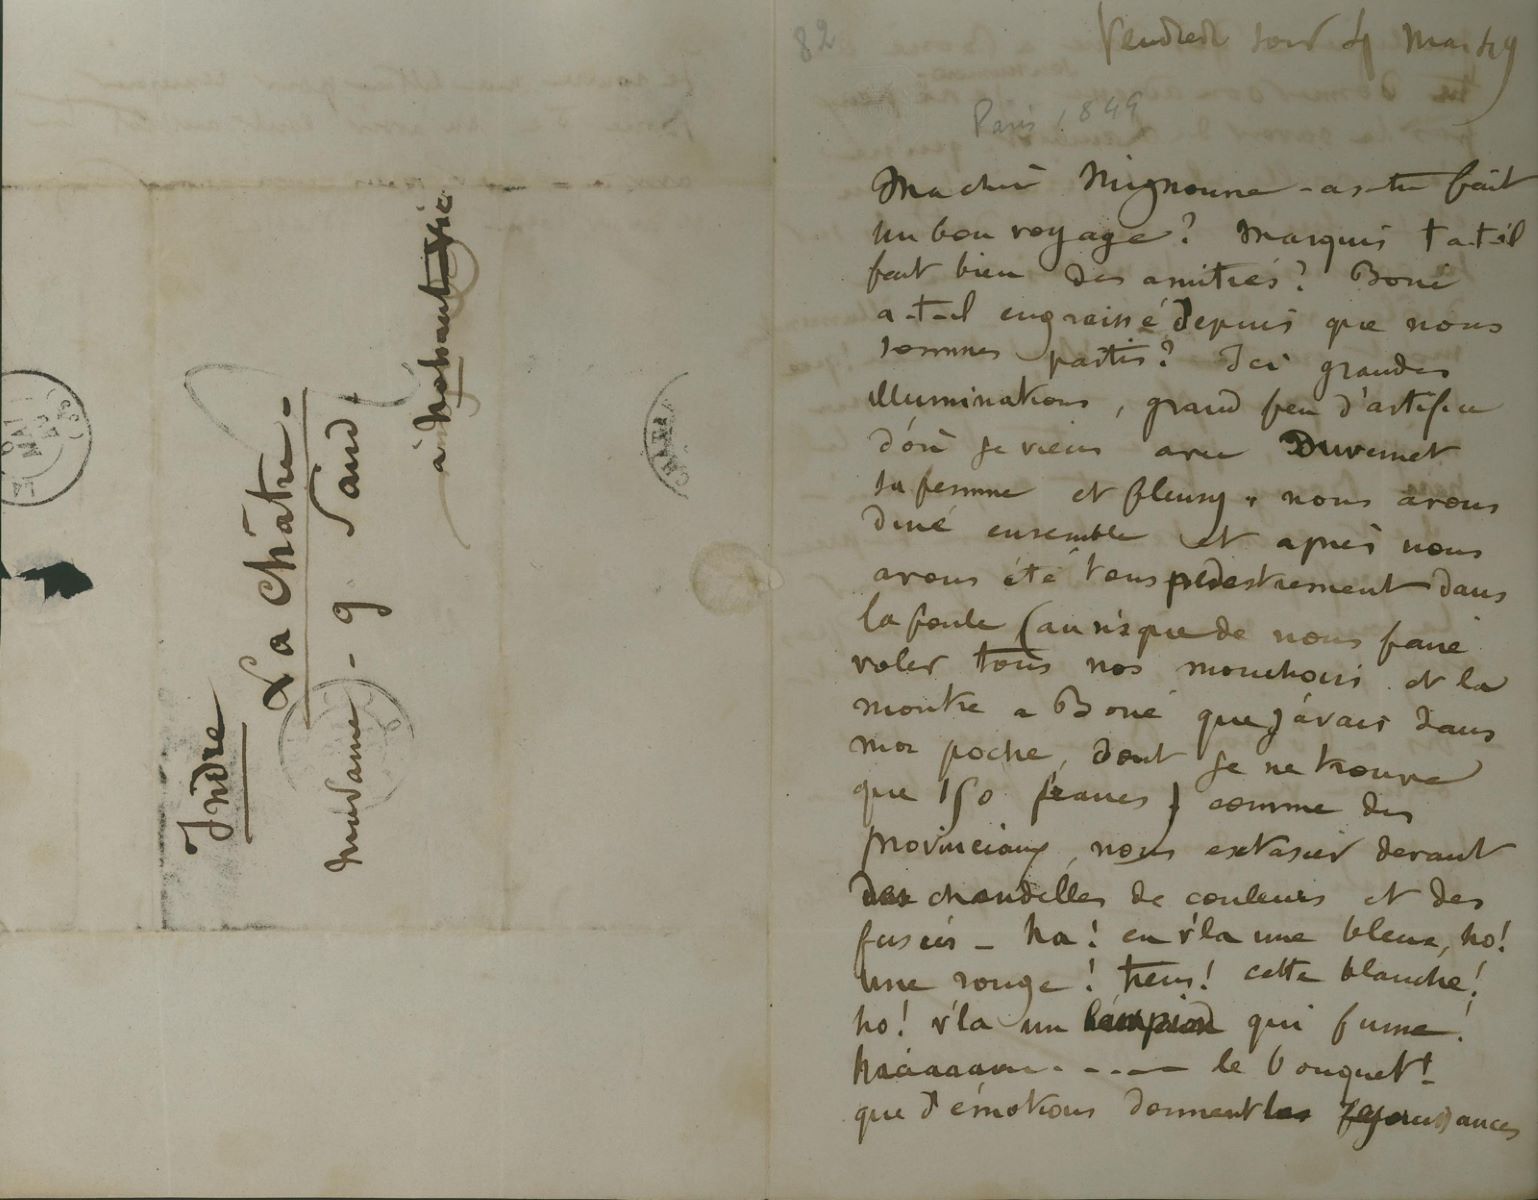 82
Vendredi soir 4 Mai 49
Paris 1849
Ma chère Mignonne - as-tu fait
un bon voyage? Marquis t'a-t-il
fait bien des amitiés? Boné
a-t-il engraissé depuis que nous
sommes partis? Ici grandes
illuminations, grand feu d'artifice
d'où je viens avec Duvernet
sa femme et fleury. nous avons
diné ensemble et après nous
avons été tous pedestrement dans
la foule (au risque de nous faire
voler tous nos mouchoirs et la
montre a Boné que j'avais dans
ma poche, dont je ne trouve
que 150 francs) comme des
provinciaux, nous extasier devant
des chandelles de couleurs et des
fusées - ha! en v'la une bleue, ho!
une rouge! tiens! cette blanche!
ho! v'la un lampion qui fume!
haaaaaa - - - - le bouquet!
que d'émotions donnent les rejouissances
Indre
La Châtre -
Madame - g. Sand
à Nohant Vic